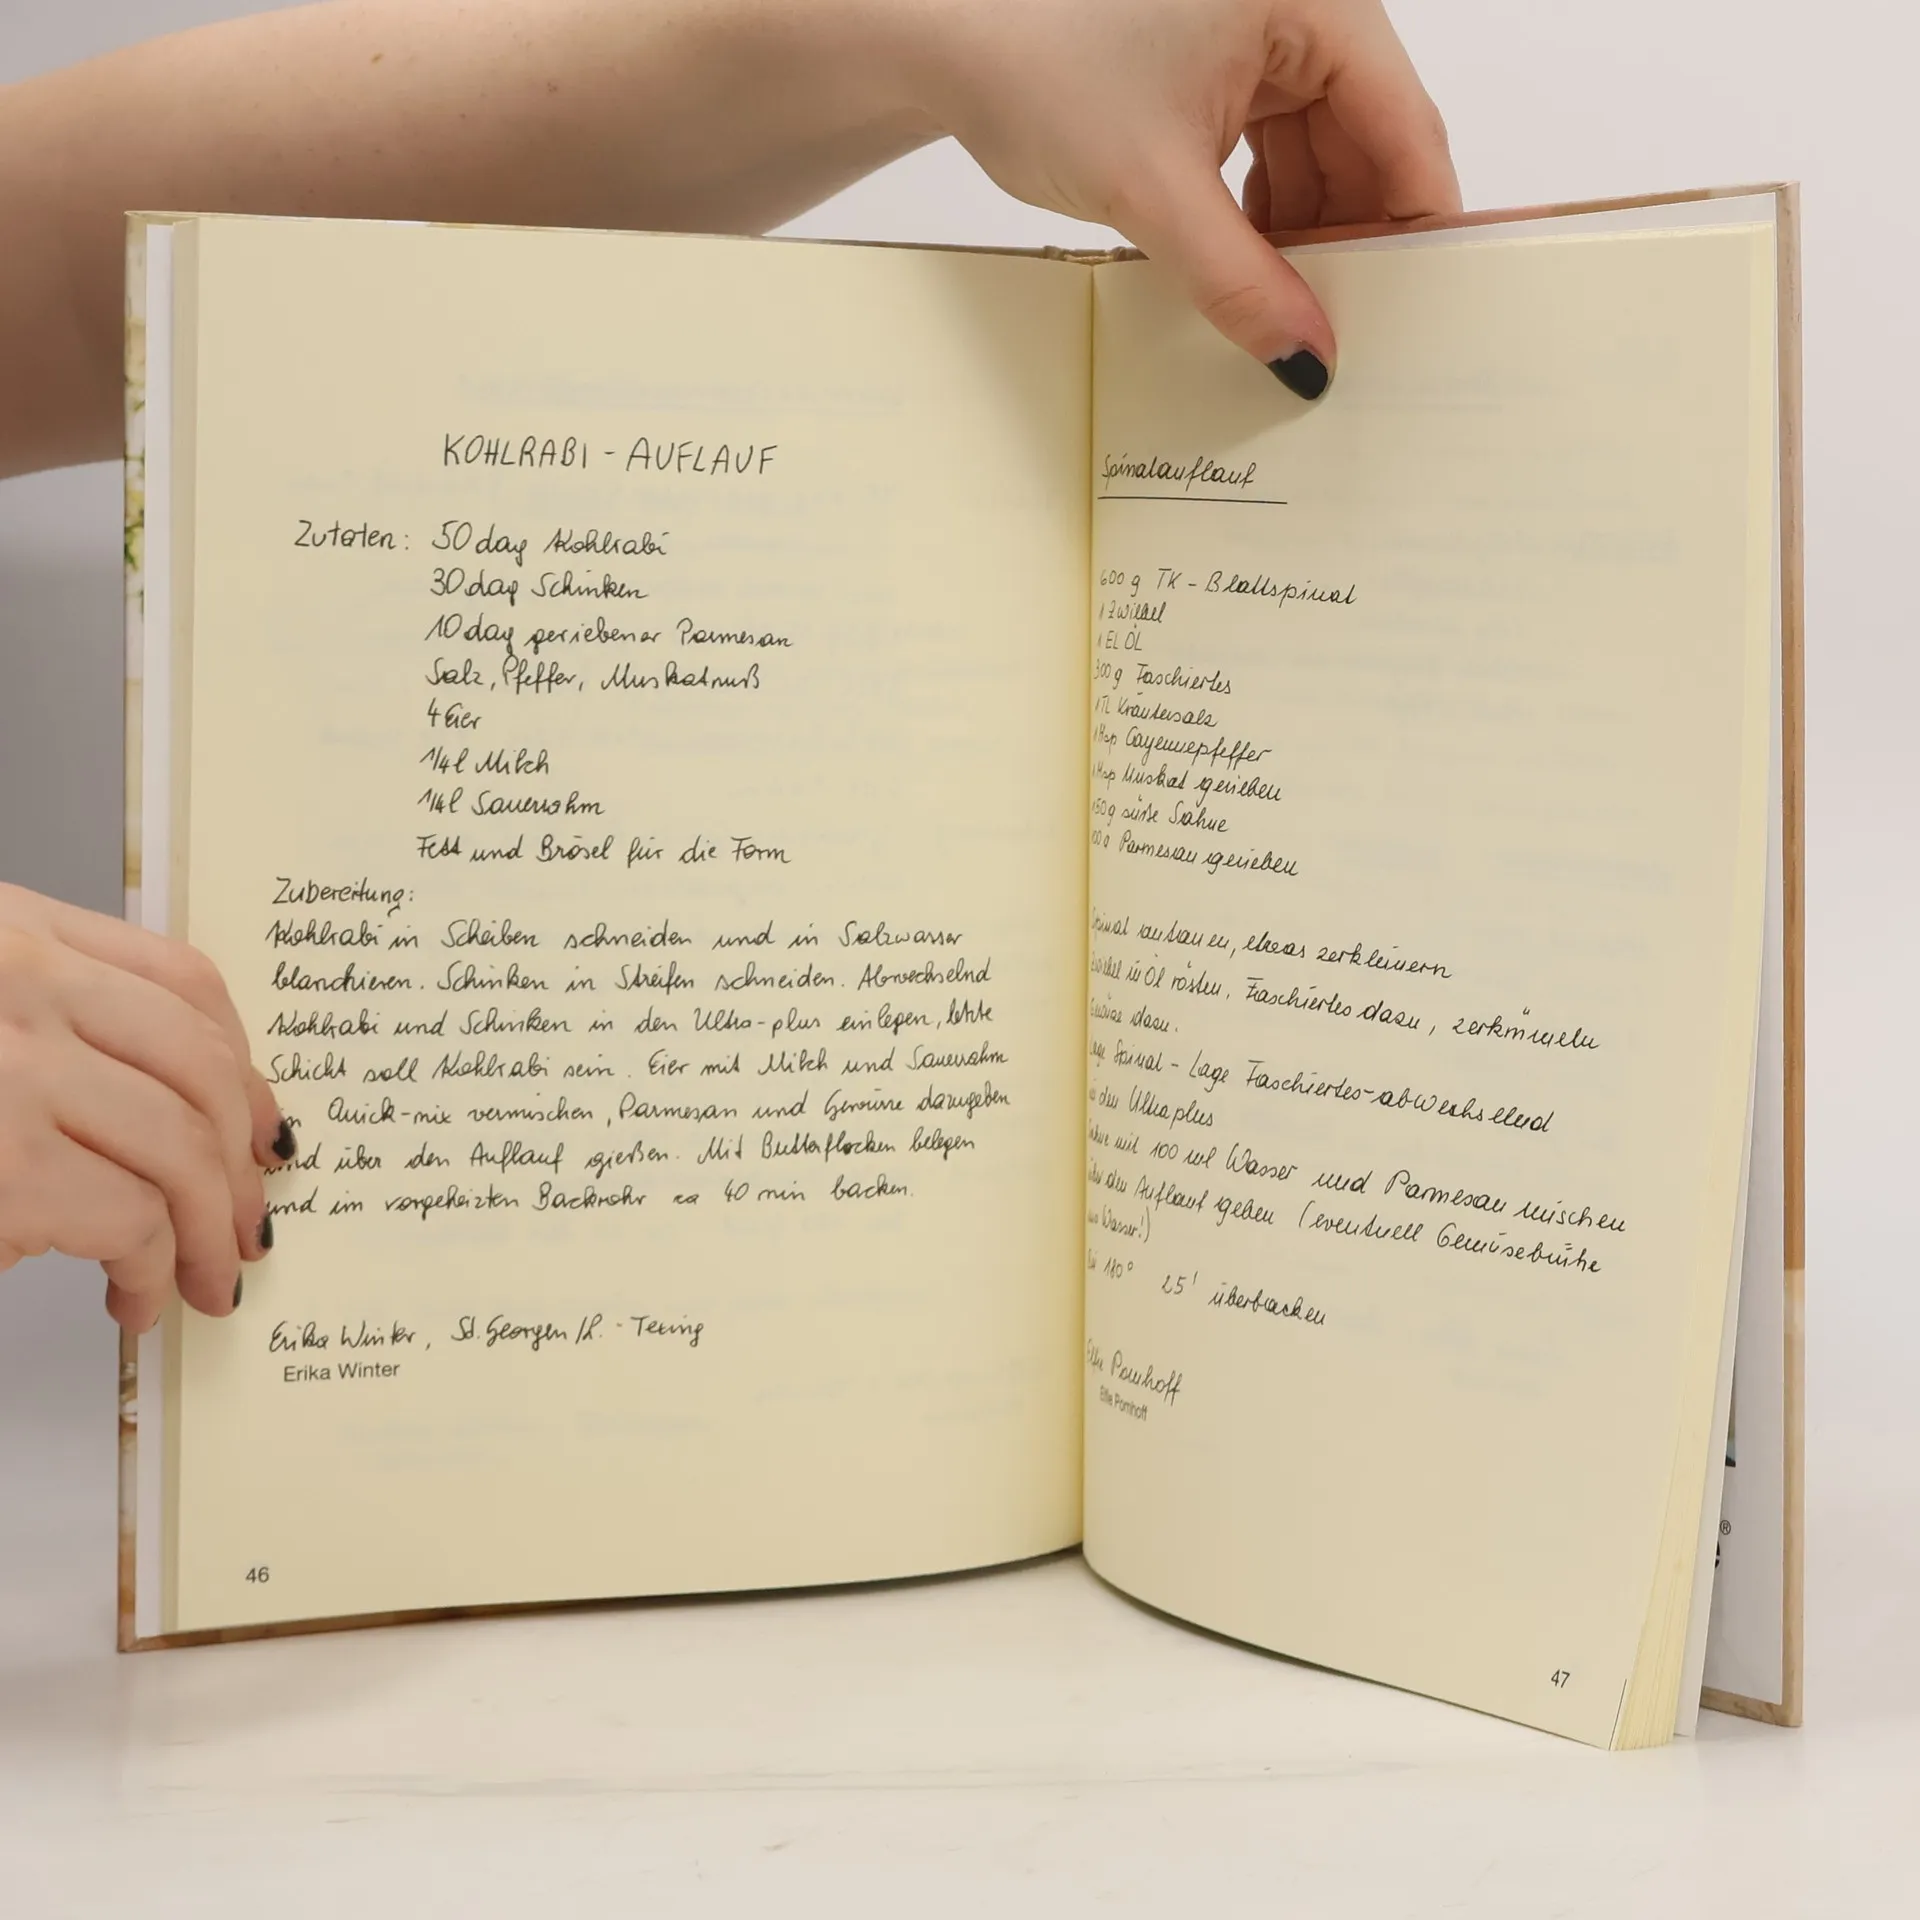 KOHLRABI - AUFLAUF
Zutaten: 50 dag Kohlrabi
30 dag Schinken
10 dag geriebener Parmesan
Salz, Pfeffer, Muskatnuß
4 Eier
1/4 l Milch
1/4 l Sauerrahm
Fett und Brösel für die Form
Zubereitung:
Kohlrabi in Scheiben schneiden und in Salzwasser
blanchieren. Schinken in Streifen schneiden. Abwechselnd
Kohlrabi und Schinken in den Ultra-plus einlegen, letzte
Schicht soll Kohlrabi sein. Eier mit Milch und Sauerrahm
in Quick-mix vermischen, Parmesan und Gewürze dazugeben
und über den Auflauf gießen. Mit Butterflocken belegen
und im vorgeheizten Backrohr ca 40 min backen.
Erika Winter, St. Georgen /L. - Texing
Erika Winter
46
Spinatauflauf
600 g TK - Blattspinat
1 Zwiebel
1 EL ÖL
300 g Faschiertes
1 TL Kräutersalz
1 Msp Cayennepfeffer
1 Msp Muskat gerieben
150 g süße Sahne
100 g Parmesan gerieben
Spinat antauen, etwas zerkleinern
Zwiebel in Öl rösten, Faschiertes dazu, zerkrümeln
Gewürze dazu.
Lage Spinat - Lage Faschiertes - abwechselnd
in den Ultraplus
Sahne mit 100 ml Wasser und Parmesan mischen
über den Auflauf geben (eventuell Gemüsebrühe
Wasser!)
Bei 180° 25' überbacken
Elfie Pomhoff
Elfie Pomhoff
47
®